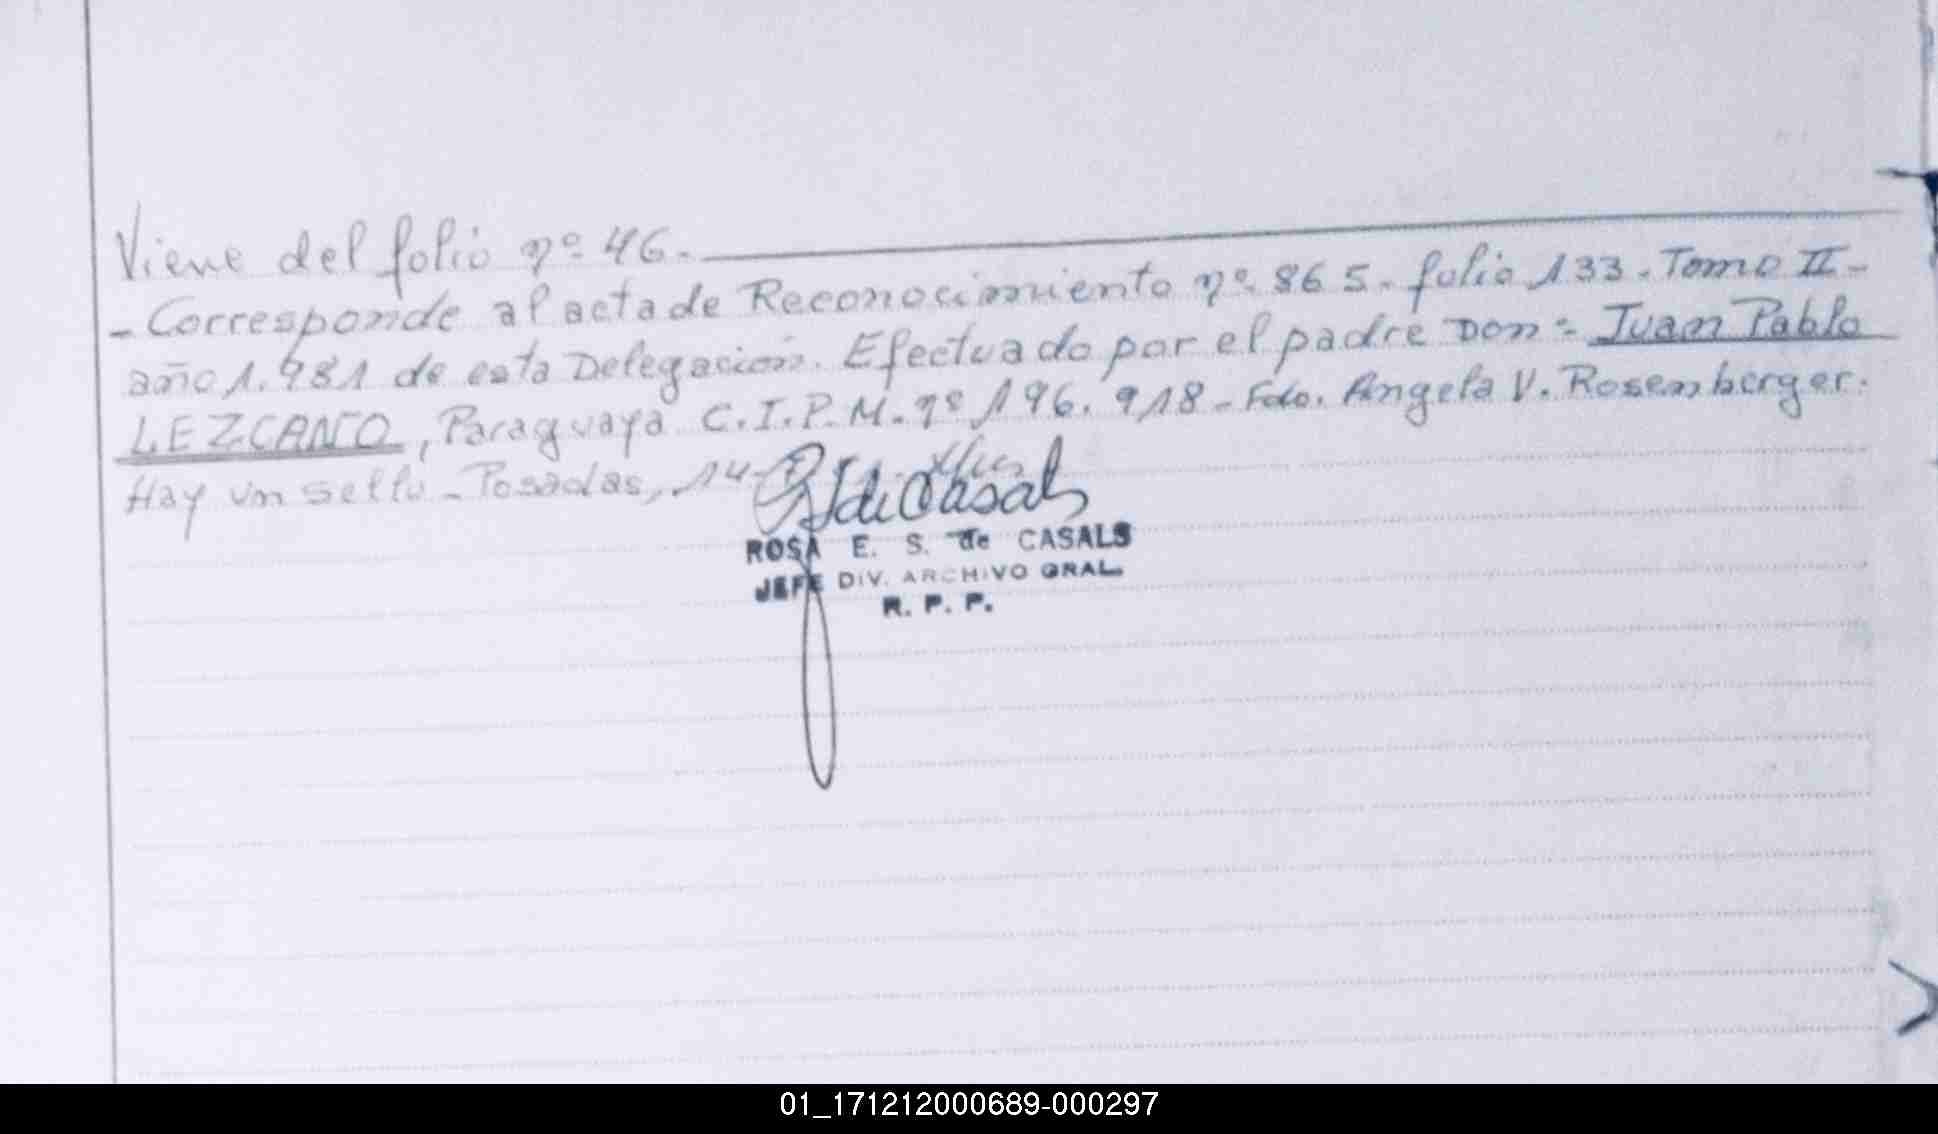 Viene del folio nº 46.
- Corresponde al acta de Reconocimiento nº 865. folio 133. Tomo II-
año 1.981 de esta Delegación. Efectuado por el padre Don: Juan Pablo
LEZCANO, Paraguaya C.I.P.M. nº 196.918 - Fdo. Angela V. Rosemberger.
Hay un sello - Posadas, 14
R S de Casals
ROSA E. S. de CASALS
JEFE DIV. ARCHIVO GRAL.
R. P. P.
01_171212000689-000297